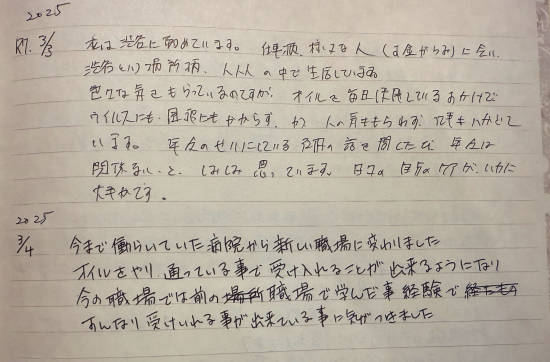 2025
R7. 3/3 私は渋谷に勤めています。仕事源、様々な人(お金がらみ)に会い、
渋谷という場所柄、人人人の中で生活している為
色々な気をもらっているのですが、オイルを毎日使用しているおかげで
ウイルスにも、風邪にもかからず、かつ人の気をもらわず
います。年令のせいにしている周りの話を聞くたび、年令は
関係ない、と、しみじみ思っています。日々の自分のケアがいかに
大事かです。
2025
3/4 今まで働らいていた病院から新しい職場に変わりました
オイルをやり通っている事で受け入れることが出来るようになり
今の職場では前の職場で学んだ事経験で
すんなり受けいれる事が出来ている事に気がつきました